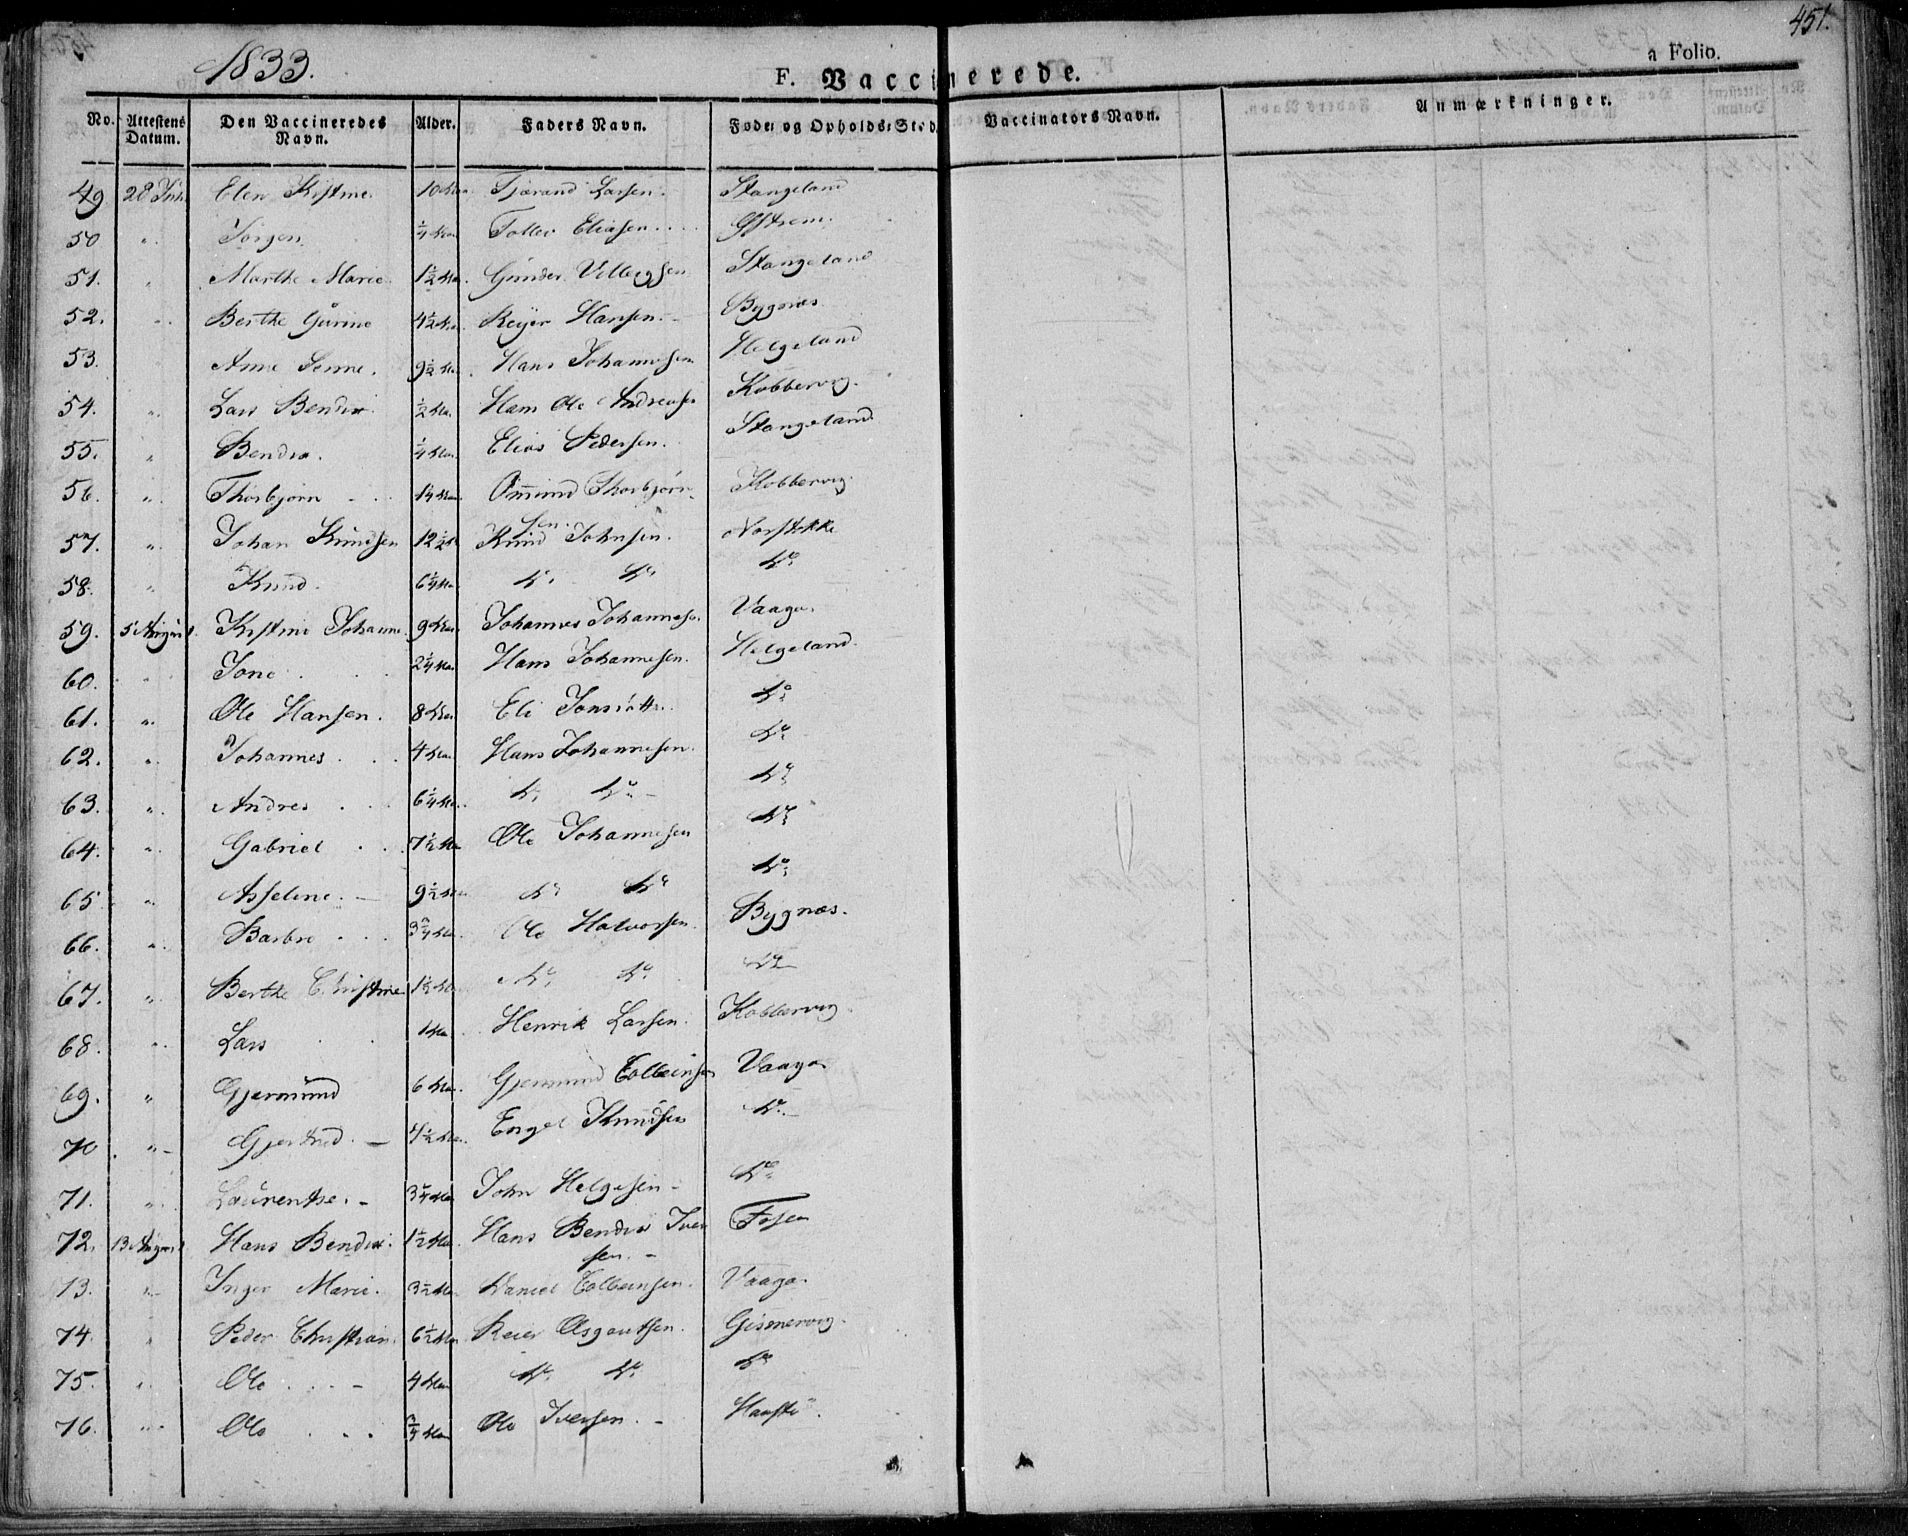 451.
1833.
F. Vaccinerede.
a Folio.
No. Attestens Datum. Den Vaccineredes Navn. Alder. Faders Navn. Føde- og Opholds-Sted. Vaccinators Navn. Anmærkninger.
49 28 Elen Kistine. 10 Tjærand Larsen. Stangeland
50 " Jørgen 1/4 Tollev Eliasen Østrem.
51. " Marthe Marie 1 1/2 Gunder Stangeland
52. " Berthe Gurine 4 1/2 Reijer Hansen. Bygnæs
53. Anne 9 1/2 Hans Johannesen Helgeland
54. " Lars Bendix 1/2 Hans Ole Andreasen Kobbervig.
55. " Bendix. 1/4 Elias Pedersen. Stangeland.
56. " Thorbjørn Omund Thorbjørn- Kobbervig.
sen.
57. " Johan Knudsen 12 1/2 Knud Johnsen. Norstokke
58. " Knud. 6 1/4 do do do
59. 5 August. Kistine Johanne. 9 Johannes Johannesen. Vaaga.
60. " Jone 2 1/4 Hans Johannesen. Helgeland.
61. " Ole Hansen. 8 Eli do
62. " Johannes 4 Hans Johannesen. do
63. " Andres 6 1/4 do do do
64. " Gabriel 7 1/2 Ole Johannesen do
65. " Asseline. 9 1/2 do do do
66. " Barbro 3 Ole Halvorsen. Bygnæs.
67. " Berthe Christine 1 1/2 do do do
68. " Lars 1 Henrik Larsen. Kobbervig
69. " Gjermund 6 Gjermund Colbeinsen Vaaga
70. " Gjertrud. 4 1/2 Engel Knudsen do
71. " Laurentse. 3 John Helgesen do
72. 13 August Hans Bendix. 1 1/2 Hans Bendix Iver Fosen
sen.
73. " Inger Marie. 3 1/2 Daniel Colbeinsen. Vaaga.
74. " Peder Christian. 6 1/2 Reier Asgoutsen. Gismervig.
75. " Ole 4 do do do
76. " Ole Ole Iversen.